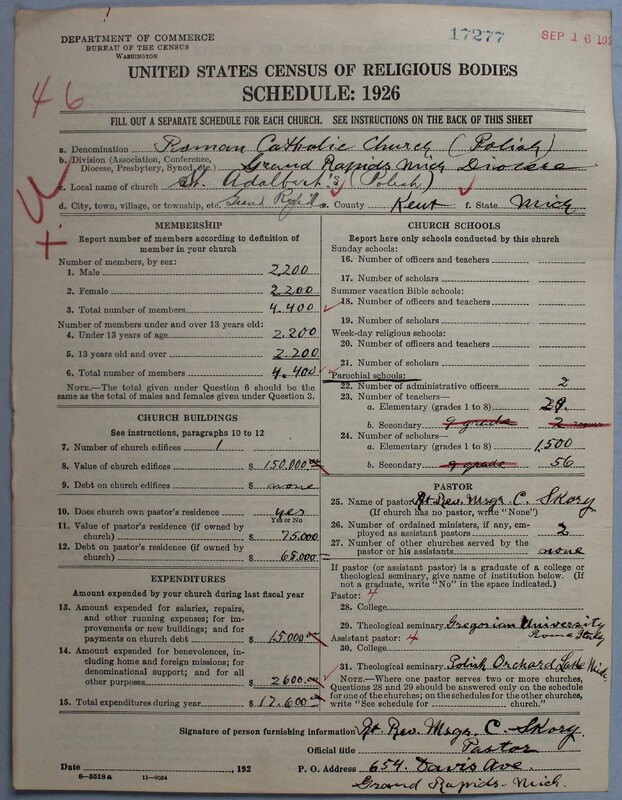 DEPARTMENT OF COMMERCE
BUREAU OF THE CENSUS
WASHINGTON
17277
SEP 16 192
UNITED STATES CENSUS OF RELIGIOUS BODIES
SCHEDULE: 1926
46
FILL OUT A SEPARATE SCHEDULE FOR EACH CHURCH. SEE INSTRUCTIONS ON THE BACK OF THIS SHEET
a. Denomination Roman Catholic Church (Polish)
b. Division (Association, Conference, Diocese, Presbytery, Synod, etc.) Grand Rapids Mich Diocese
c. Local name of church St. Adalbert's (Polish)
d. City, town, village, or township, etc. Grand Rapids e. County Kent f. State Mich
MEMBERSHIP
Report number of members according to definition of
member in your church
Number of members, by sex:
1. Male 2,200
2. Female 2200
3. Total number of members 4.400
Number of members under and over 13 years old:
4. Under 13 years of age 2.200
5. 13 years old and over 2.200
6. Total number of members 4.400
NOTE.—The total given under Question 6 should be
the same as the total of males and females given under Question 3.
CHURCH BUILDINGS
See instructions, paragraphs 10 to 12
7. Number of church edifices 1
8. Value of church edifices $ 150.000.00
9. Debt on church edifices $ none
10. Does church own pastor's residence yes
Yes or No
11. Value of pastor's residence (if owned by
church) $ 75.000
12. Debt on pastor's residence (if owned by
church) $ 65.000
EXPENDITURES
Amount expended by your church during last fiscal year
13. Amount expended for salaries, repairs,
and other running expenses; for im-
provements or new buildings; and for
payments on church debt $ 15.000
14. Amount expended for benevolences,
including home and foreign missions; for
denominational support; and for all
other purposes $ 2600.
15. Total expenditures during year $ 17.600
CHURCH SCHOOLS
Report here only schools conducted by this church
Sunday schools:
16. Number of officers and teachers
17. Number of scholars
Summer vacation Bible schools:
18. Number of officers and teachers
19. Number of scholars
Week-day religious schools:
20. Number of officers and teachers
21. Number of scholars
Parochial schools:
22. Number of administrative officers 2
23. Number of teachers—
a. Elementary (grades 1 to 8) 29.
b. Secondary 9 grade 2
24. Number of scholars—
a. Elementary (grades 1 to 8) 1,500
b. Secondary 9 grade 56
PASTOR
25. Name of pastor Rt. Rev. Msgr. C. Skory
(If church has no pastor, write "None")
26. Number of ordained ministers, if any, em-
ployed as assistant pastors 2
27. Number of other churches served by the
pastor or his assistants none
If pastor (or assistant pastor) is a graduate of a college or
theological seminary, give name of institution below. (If
not a graduate, write "No" in the space indicated.)
Pastor: 4
28. College
29. Theological seminary Gregorian University
Rome Italy
Assistant pastor: 4
30. College
31. Theological seminary Polish Orchard Lake Mich.
NOTE.—Where one pastor serves two or more churches,
Questions 28 and 29 should be answered only on the schedule
for one of the churches; on the schedules for the other churches,
write "See schedule for church."
Signature of person furnishing information Rt. Rev. Msgr. C. Skory.
Official title Pastor
Date , 192 P. O. Address 654 Davis Ave.
8—5518a 11—9024
Grand Rapids - Mich.